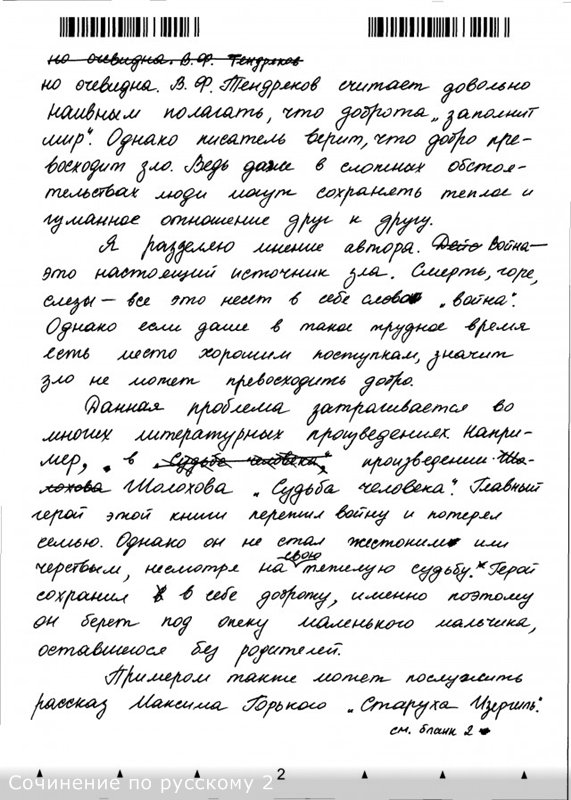 но очевидна. В.Ф. Тендряков
но очевидна. В.Ф. Тендреков считает довольно
наивным полагать, что доброта „заполнит
мир“. Однако писатель верит, что добро пре-
восходит зло. Ведь даже в сложных обстоя-
тельствах люди могут сохранять теплое и
гуманное отношение друг к другу.
Я разделяю мнение автора. Дейс Война —
это настоящий источник зла. Смерть, горе,
слезы — все это несет в себе слово „война“.
Однако если даже в такое трудное время
есть место хорошим поступкам, значит
зло не может превосходить добро.
Данная проблема затрагивается во
многих литературных произведениях. Напри-
мер, в „Судьба человека“, произведении Шо-
лохова Шолохова „Судьба человека“. Главный
герой этой книги пережил войну и потерял
семью. Однако он не стал жестоким или
черствым, несмотря на свою тяжелую судьбу. Герой
сохранил в себе доброту, именно поэтому
он берет под опеку маленького мальчика,
оставшегося без родителей.
Примером также может послужить
рассказ Максима Горького „Старуха Изергиль“.
см. бланк 2
2
Сочинение по русскому 2